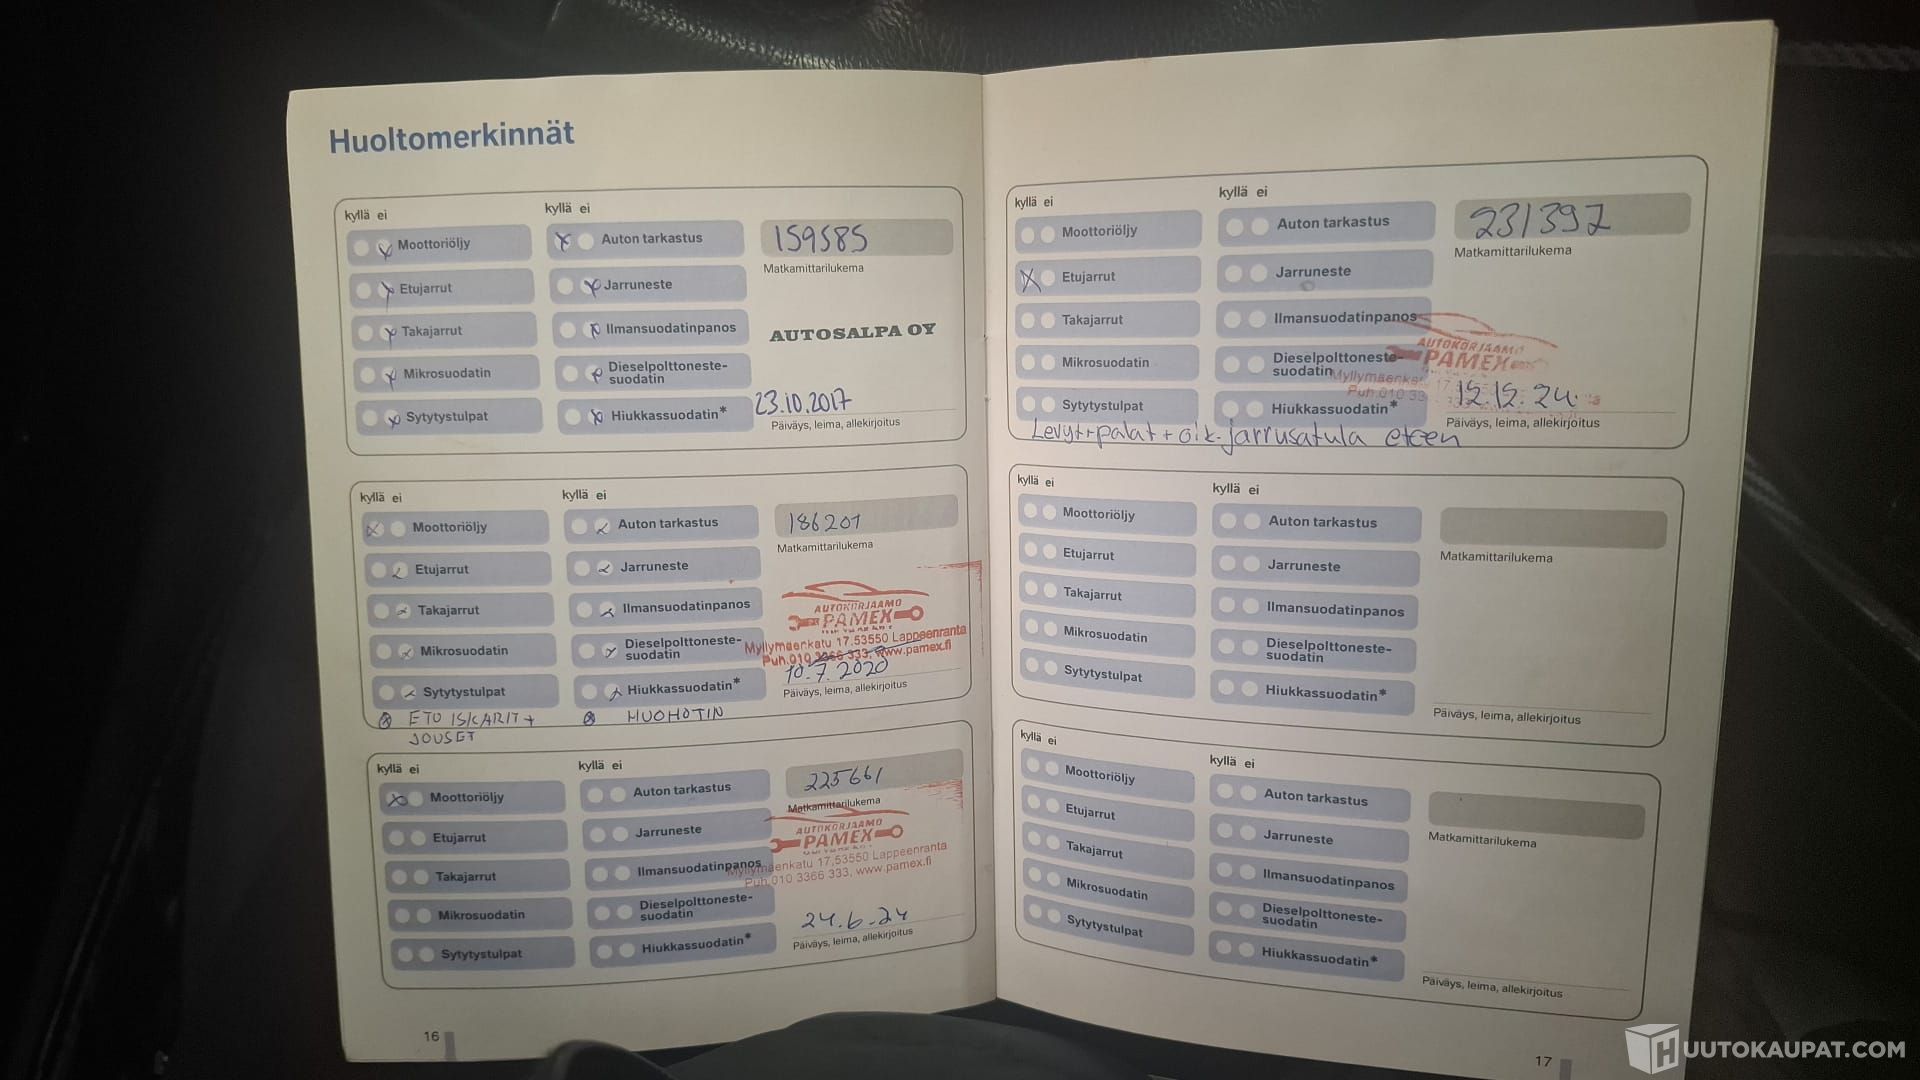 Huoltomerkinnät
kyllä ei
kyllä ei
Moottoriöljy
Auton tarkastus
159585
Etujarrut
Jarruneste
Matkamittarilukema
Takajarrut
Ilmansuodatinpanos
AUTOSALPA OY
Mikrosuodatin
Dieselpolttoneste-
suodatin
Sytytystulpat
Hiukkassuodatin*
23.10.2017
Päiväys, leima, allekirjoitus
kyllä ei
kyllä ei
Moottoriöljy
Auton tarkastus
186201
Etujarrut
Jarruneste
Matkamittarilukema
Takajarrut
Ilmansuodatinpanos
AUTOKORJAAMO
PAMEX
Mikrosuodatin
Dieselpolttoneste-
suodatin
Myllymäenkatu 17,53550 Lappeenranta
Puh.010 3366 333, www.pamex.fi
Sytytystulpat
Hiukkassuodatin*
10.7.2020
Päiväys, leima, allekirjoitus
ETU ISKARIT +
JOUSET
HUOHOTIN
kyllä ei
kyllä ei
Moottoriöljy
Auton tarkastus
225661
Etujarrut
Jarruneste
Matkamittarilukema
Takajarrut
Ilmansuodatinpanos
AUTOKORJAAMO
PAMEX
Myllymäenkatu 17,53550 Lappeenranta
Puh.010 3366 333, www.pamex.fi
Mikrosuodatin
Dieselpolttoneste-
suodatin
Sytytystulpat
Hiukkassuodatin*
24.6.24
Päiväys, leima, allekirjoitus
16
kyllä ei
kyllä ei
Moottoriöljy
Auton tarkastus
231392
Etujarrut
Jarruneste
Matkamittarilukema
Takajarrut
Ilmansuodatinpanos
AUTOKORJAAMO
PAMEX
Mikrosuodatin
Dieselpolttoneste-
suodatin
Sytytystulpat
Hiukkassuodatin*
12.12.24
Päiväys, leima, allekirjoitus
Levyt+palat+oik.jarrusatula eteen
kyllä ei
kyllä ei
Moottoriöljy
Auton tarkastus
Etujarrut
Jarruneste
Matkamittarilukema
Takajarrut
Ilmansuodatinpanos
Mikrosuodatin
Dieselpolttoneste-
suodatin
Sytytystulpat
Hiukkassuodatin*
Päiväys, leima, allekirjoitus
kyllä ei
kyllä ei
Moottoriöljy
Auton tarkastus
Etujarrut
Jarruneste
Matkamittarilukema
Takajarrut
Ilmansuodatinpanos
Mikrosuodatin
Dieselpolttoneste-
suodatin
Sytytystulpat
Hiukkassuodatin*
Päiväys, leima, allekirjoitus
17
HUUTOKAUPAT.COM